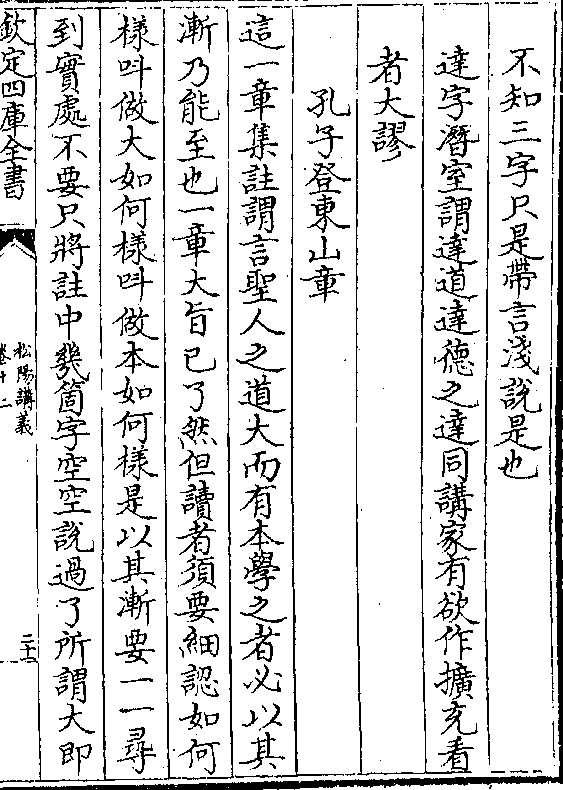 不知三字只是帶言淺說是也
達字潛室謂達道達德之達同講家有欲作擴充看
者大謬
孔子登東山章
這一章集註謂言聖人之道大而有本學之者必以其
漸乃能至也一章大旨已了然但讀者須要細認如何
樣呌做大如何樣呌做本如何樣是以其漸要一一尋
到實處不要只將註中幾箇字空空說過了所謂大即
欽定四庫全書
松陽講義
卷十二